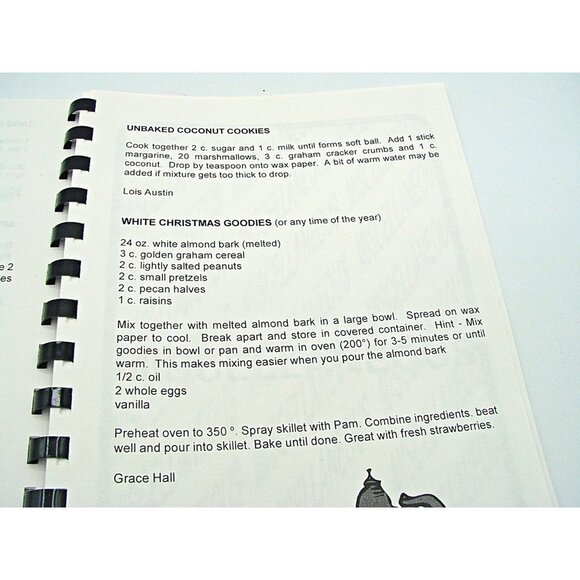 UNBAKED COCONUT COOKIES
Cook together 2 c. sugar and 1 c. milk until forms soft ball. Add 1 stick
margarine, 20 marshmallows, 3 c. graham cracker crumbs and 1 c.
coconut. Drop by teaspoon onto wax paper. A bit of warm water may be
added if mixture gets too thick to drop.
Lois Austin
WHITE CHRISTMAS GOODIES (or any time of the year)
24 oz. white almond bark (melted)
3 c. golden graham cereal
2 c. lightly salted peanuts
2 c. small pretzels
2 c. pecan halves
1 c. raisins
Mix together with melted almond bark in a large bowl. Spread on wax
paper to cool. Break apart and store in covered container. Hint - Mix
goodies in bowl or pan and warm in oven (200°) for 3-5 minutes or until
warm. This makes mixing easier when you pour the almond bark
1/2 c. oil
2 whole eggs
vanilla
Preheat oven to 350 º. Spray skillet with Pam. Combine ingredients. beat
well and pour into skillet. Bake until done. Great with fresh strawberries.
Grace Hall